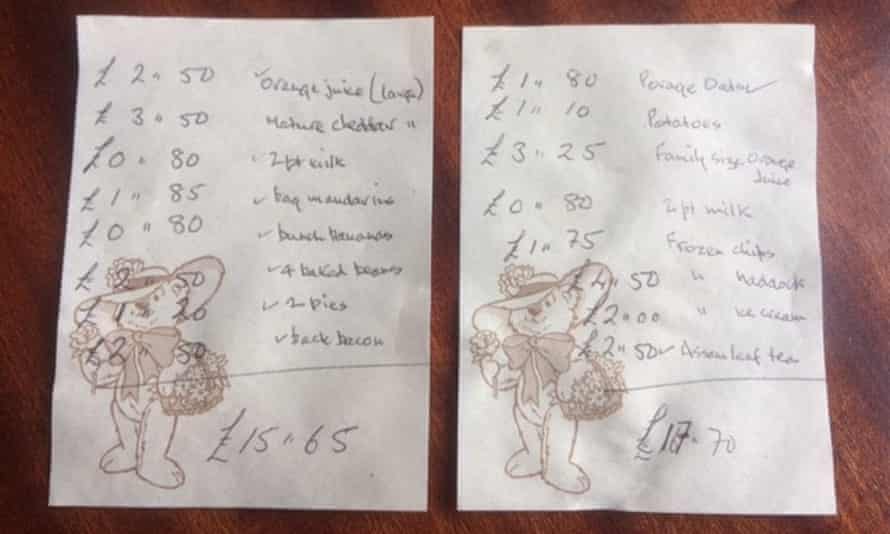 £ 2 " 50 ✓ Orange juice (large)
£ 3 " 50 Mature cheddar "
£0 " 80 ✓ 2pt milk
£1 " 85 ✓ bag mandarins
£0 " 80 ✓ bunch bananas
£ 2 " 50 ✓ 4 baked beans
£ 1 " 20 ✓ 2 pies
£2 " 50 ✓ back bacon
£15 " 65
£1 " 80 Porage
£1 " 10 Potatoes
£3 " 25 Family size Orange
Juice
£0 " 80 2pt milk
£1 " 75 Frozen chips
£4 " 50 " haddock
£2 " 00 " ice cream
£2 " 50 ✓ Assam leaf tea
£17 " 70